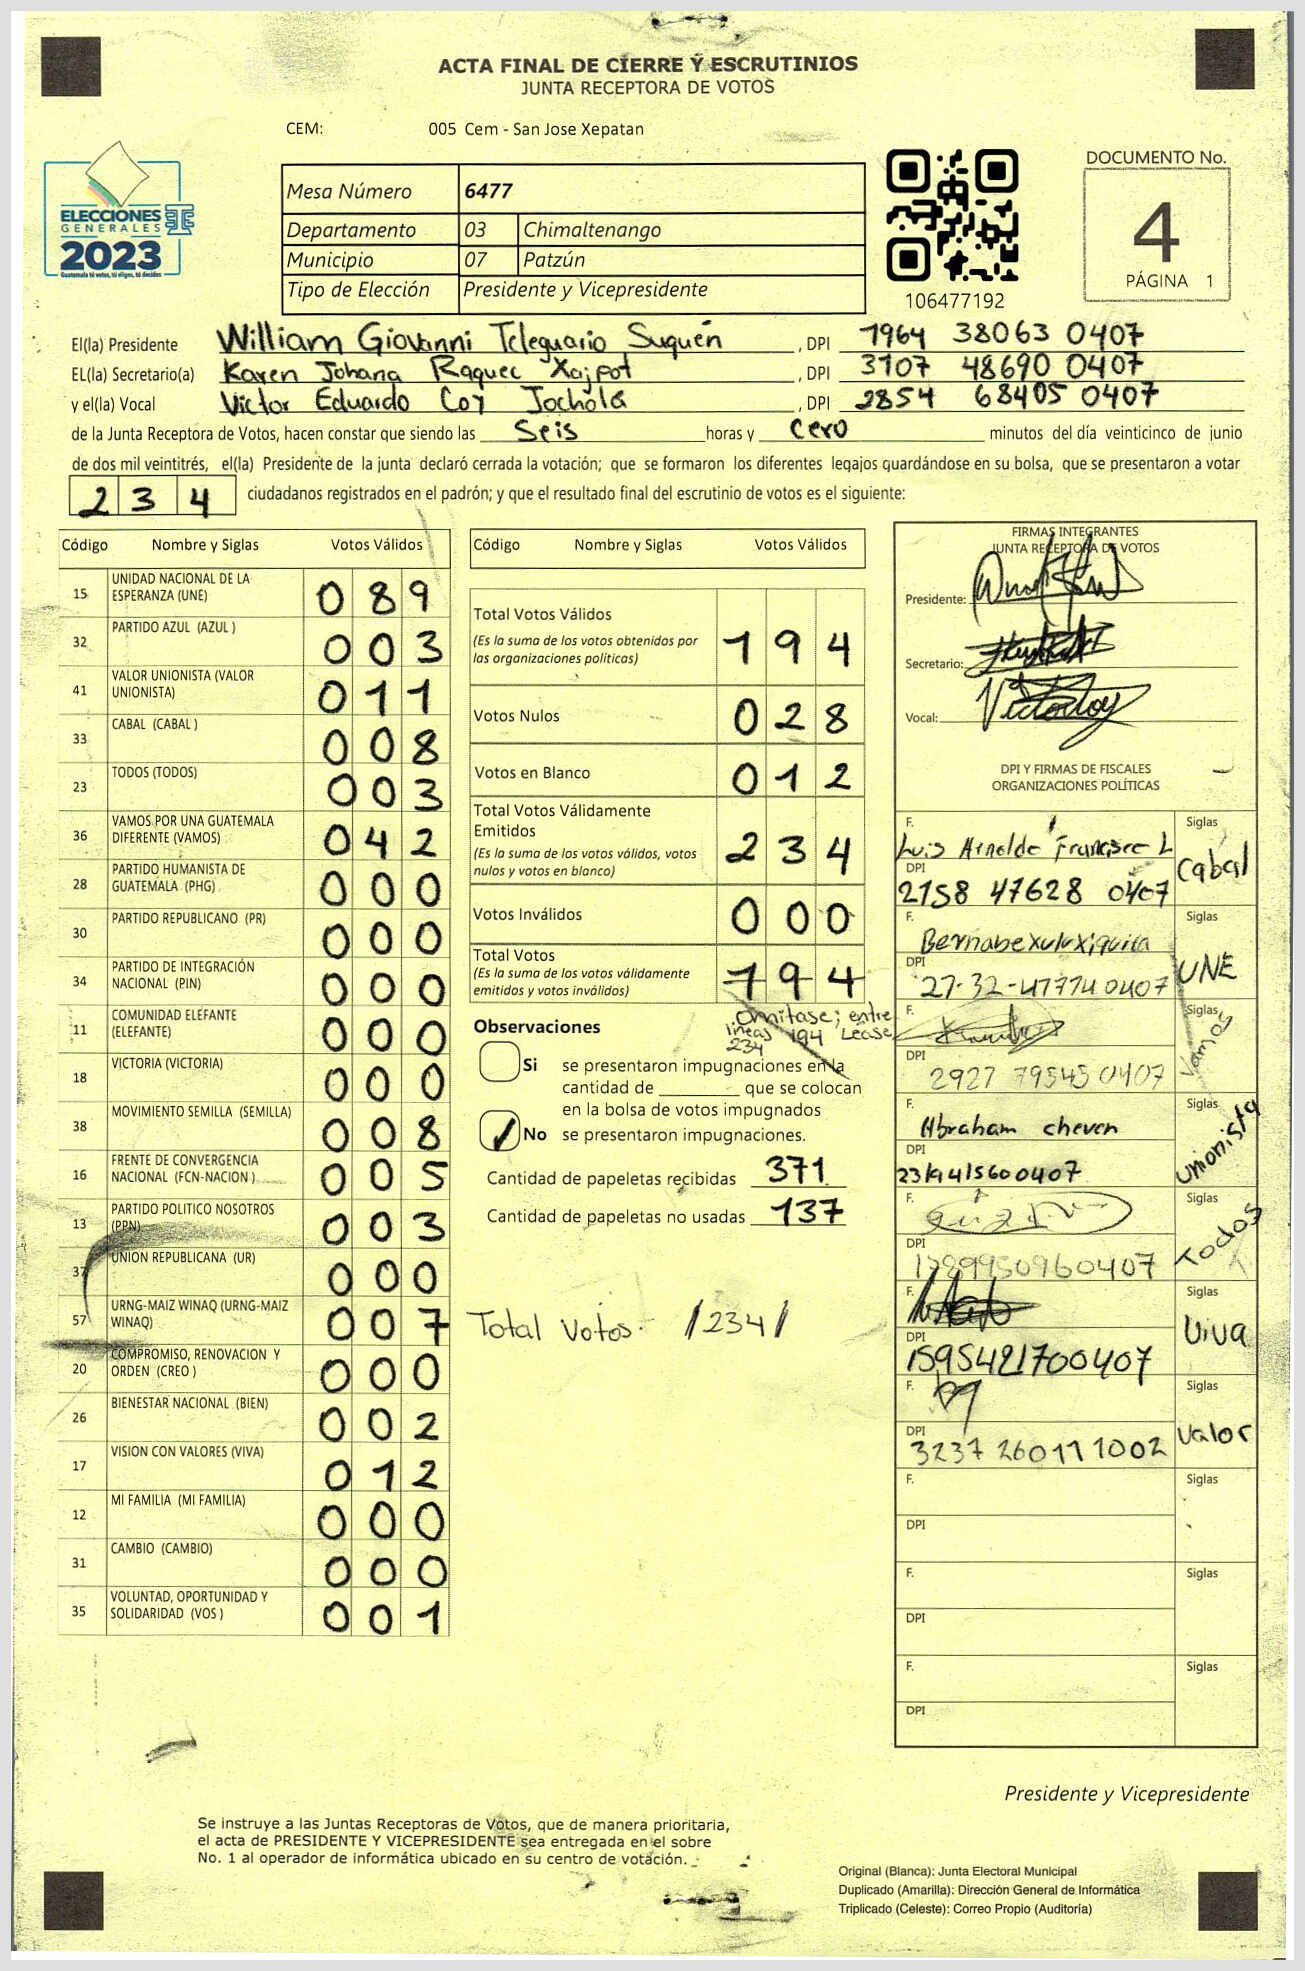 ACTA FINAL DE CIERRE Y ESCRUTINIOS
JUNTA RECEPTORA DE VOTOS
CEM: 005 Cem - San Jose Xepatan
ELECCIONES
GENERALES
2023
Guatemala tú votas, tú eliges, tú decides
Mesa Número 6477
Departamento 03 Chimaltenango
Municipio 07 Patzún
Tipo de Elección Presidente y Vicepresidente
106477192
DOCUMENTO No.
4
PÁGINA 1
El(la) Presidente William Giovanni Teleguario Suquén, DPI 1964 38063 0407
EL(la) Secretario(a) Karen Johana Raquec Xajpot, DPI 3107 48690 0407
y el(la) Vocal Victor Eduardo Coy Jocholá, DPI 2854 68405 0407
de la Junta Receptora de Votos, hacen constar que siendo las Seis horas y cero minutos del día veinticinco de junio
de dos mil veintitrés, el(la) Presidente de la junta declaró cerrada la votación; que se formaron los diferentes legajos guardándose en su bolsa, que se presentaron a votar
234 ciudadanos registrados en el padrón; y que el resultado final del escrutinio de votos es el siguiente:
Código Nombre y Siglas Votos Válidos
15 UNIDAD NACIONAL DE LA ESPERANZA (UNE) 089
32 PARTIDO AZUL (AZUL ) 003
41 VALOR UNIONISTA (VALOR UNIONISTA) 011
33 CABAL (CABAL ) 008
23 TODOS (TODOS) 003
36 VAMOS POR UNA GUATEMALA DIFERENTE (VAMOS) 042
28 PARTIDO HUMANISTA DE GUATEMALA (PHG) 000
30 PARTIDO REPUBLICANO (PR) 000
34 PARTIDO DE INTEGRACIÓN NACIONAL (PIN) 000
11 COMUNIDAD ELEFANTE (ELEFANTE) 000
18 VICTORIA (VICTORIA) 000
38 MOVIMIENTO SEMILLA (SEMILLA) 008
16 FRENTE DE CONVERGENCIA NACIONAL (FCN-NACION ) 005
13 PARTIDO POLITICO NOSOTROS (PPN) 003
37 UNION REPUBLICANA (UR) 000
57 URNG-MAIZ WINAQ (URNG-MAIZ WINAQ) 007
20 COMPROMISO, RENOVACION Y ORDEN (CREO ) 000
26 BIENESTAR NACIONAL (BIEN) 002
17 VISION CON VALORES (VIVA) 012
12 MI FAMILIA (MI FAMILIA) 000
31 CAMBIO (CAMBIO) 000
35 VOLUNTAD, OPORTUNIDAD Y SOLIDARIDAD (VOS ) 001
Código Nombre y Siglas Votos Válidos
Total Votos Válidos 194
(Es la suma de los votos obtenidos por
las organizaciones políticas)
Votos Nulos 028
Votos en Blanco 012
Total Votos Válidamente
Emitidos 234
(Es la suma de los votos válidos, votos
nulos y votos en blanco)
Votos Inválidos 000
Total Votos 194
(Es la suma de los votos válidamente
emitidos y votos inválidos)
Omitase; entre
lineas 194 Léase
234
Observaciones
Si se presentaron impugnaciones en la
cantidad de ________ que se colocan
en la bolsa de votos impugnados
No se presentaron impugnaciones.
Cantidad de papeletas recibidas 371
Cantidad de papeletas no usadas 137
Total Votos. /234/
FIRMAS INTEGRANTES
JUNTA RECEPTORA DE VOTOS
Presidente:
Secretario:
Vocal:
DPI Y FIRMAS DE FISCALES
ORGANIZACIONES POLÍTICAS
F. Luis Arnoldo Francisco L Siglas Cabal
DPI 2158 47628 0407
F. Bernabe Xulu Xiquita Siglas UNE
DPI 27-32-47774 0407
F. Siglas Vamos
DPI 2927 79545 0407
F. Abraham cheven Siglas unionista
DPI
F. Siglas Todos
DPI
F. Siglas Viva
DPI 1595421700407
F. Siglas Valor
DPI 3237 26017 1002
F. Siglas
DPI
F. Siglas
DPI
F. Siglas
DPI
Presidente y Vicepresidente
Se instruye a las Juntas Receptoras de Votos, que de manera prioritaria,
el acta de PRESIDENTE Y VICEPRESIDENTE sea entregada en el sobre
No. 1 al operador de informática ubicado en su centro de votación.
Original (Blanca): Junta Electoral Municipal
Duplicado (Amarilla): Dirección General de Informática
Triplicado (Celeste): Correo Propio (Auditoría)